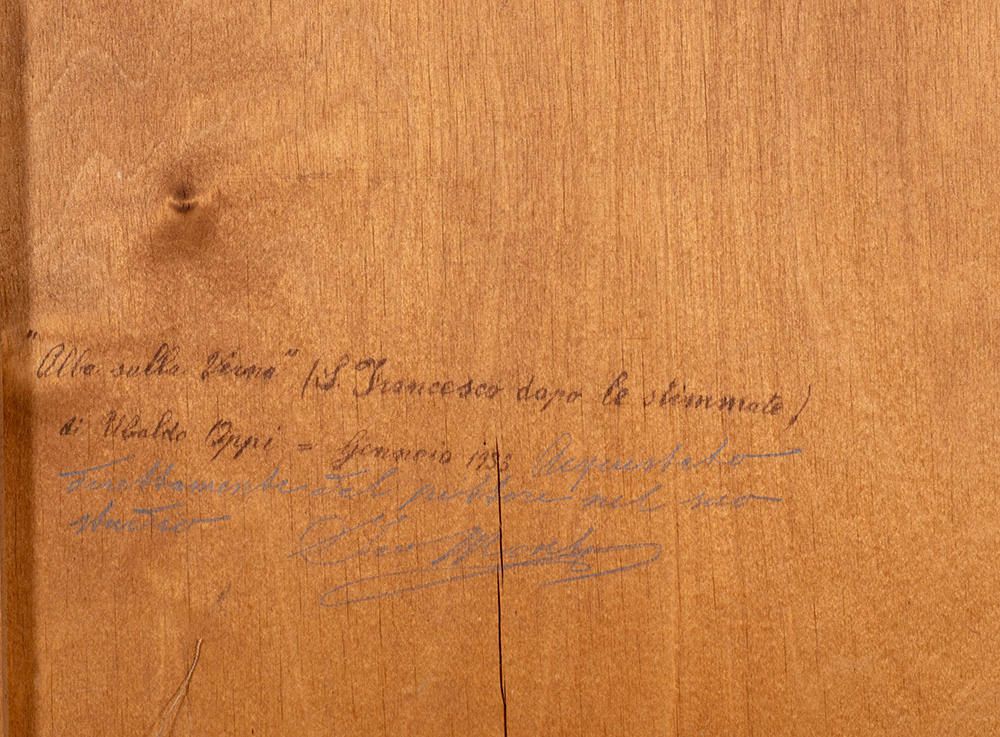 "Alba sulla Verna" (S. Francesco dopo le stimmate)
di Ubaldo Oppi = Gennaio Acquistato
direttamente dal pittore nel suo
studio